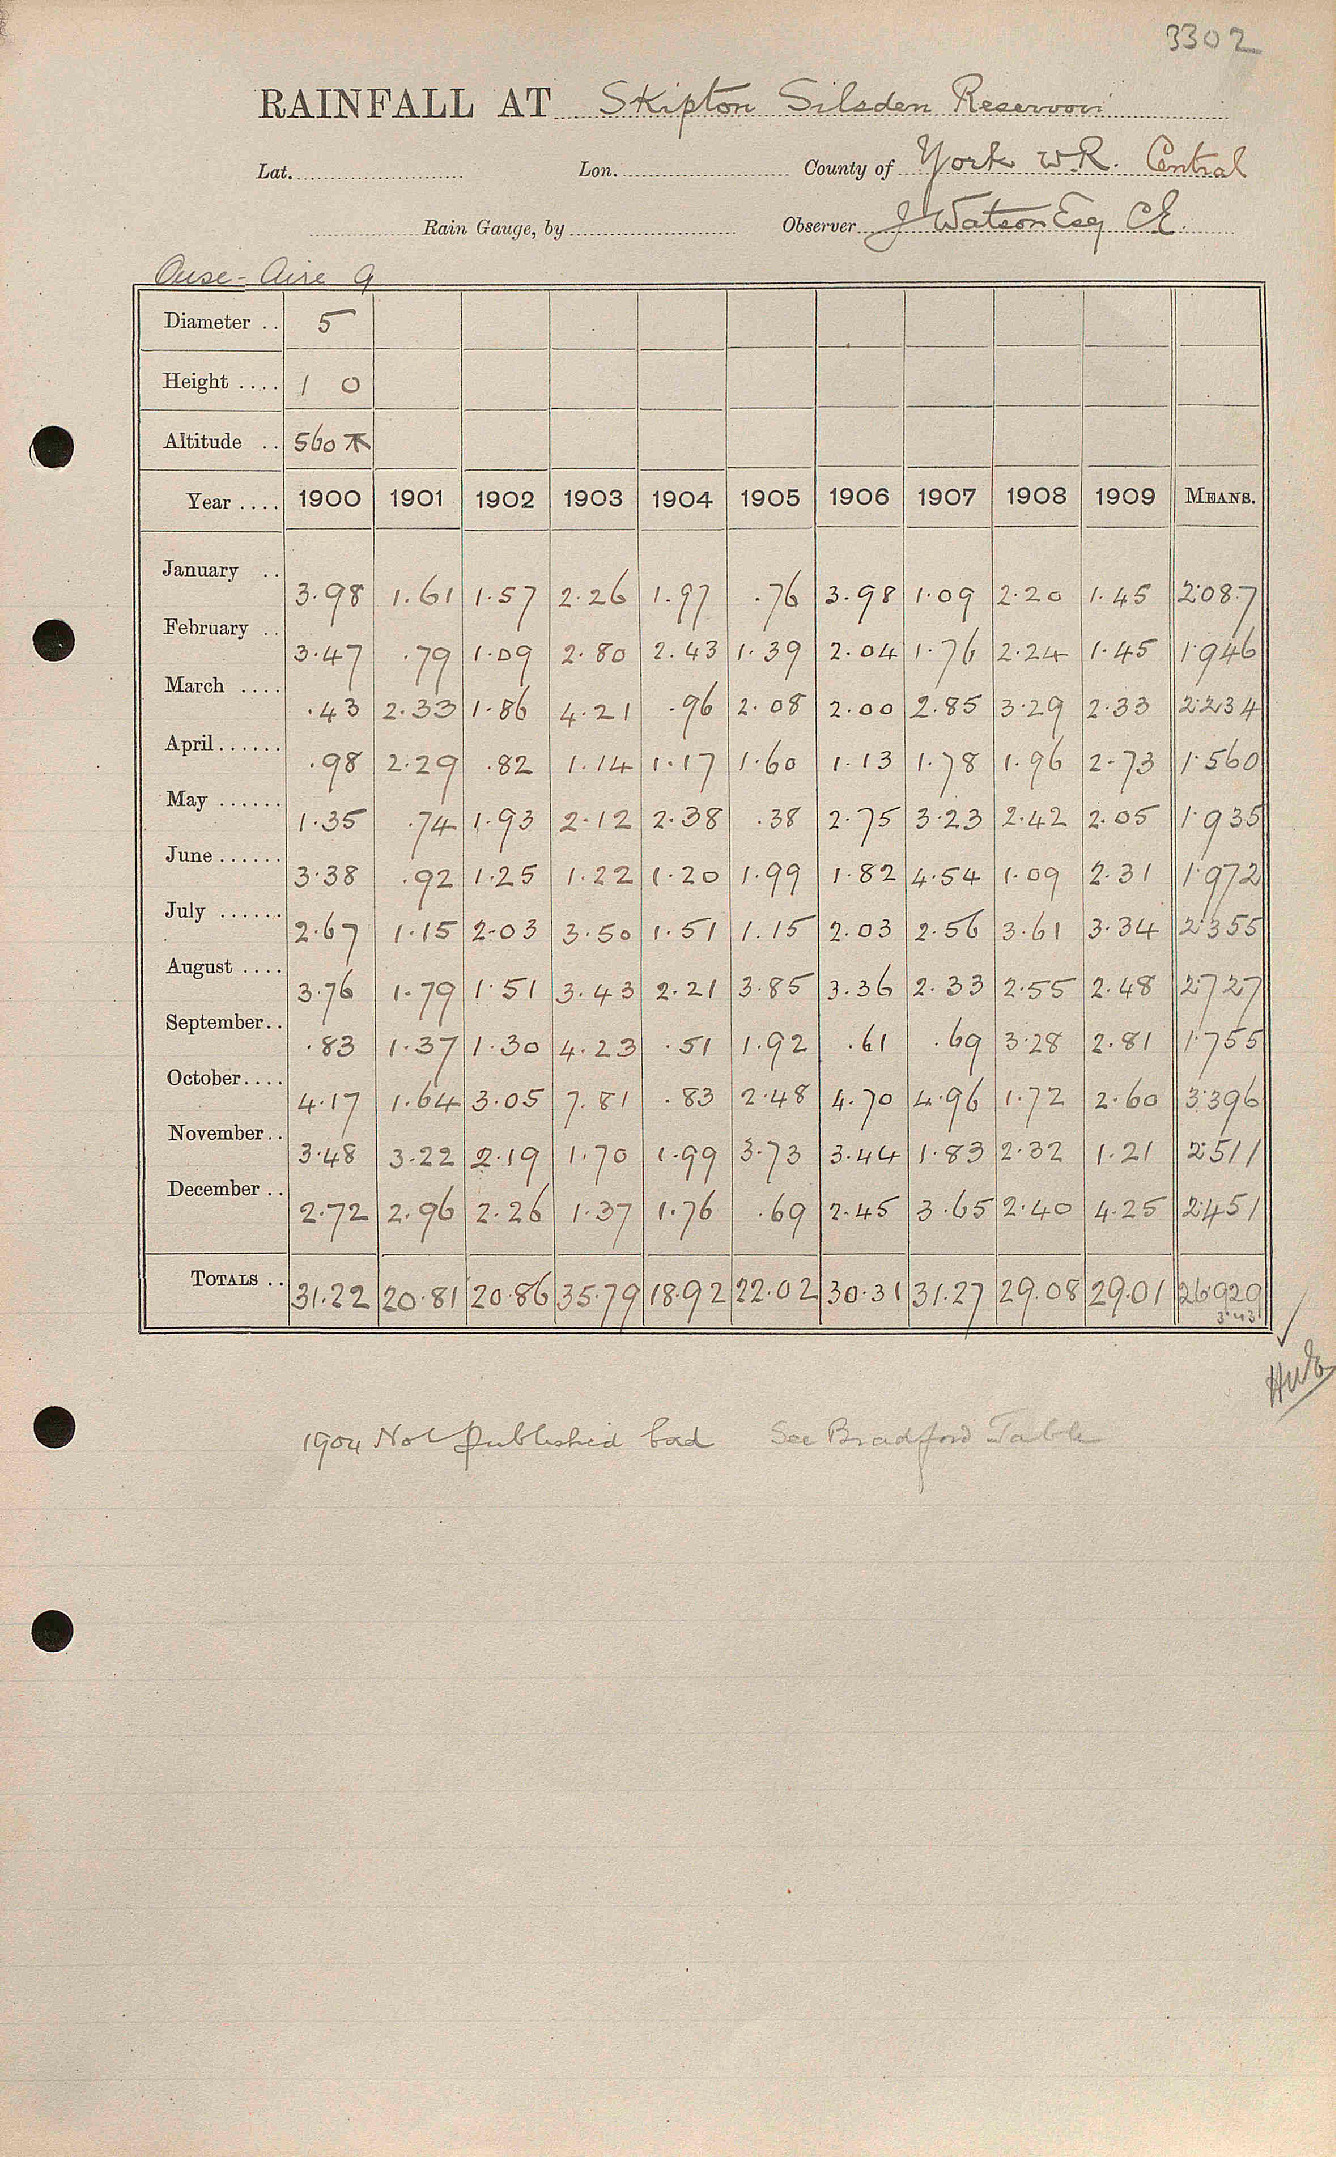 3302
RAINFALL AT Skipton Silsden Reservoir
Lat. Lon. County of York W.R. Central
Rain Gauge, by Observer J Watson Esq CE.
Ouse - Aire 9
Diameter .. 5
Height .... 1 0
Altitude .. 560
Year .... 1900 1901 1902 1903 1904 1905 1906 1907 1908 1909 MEANS.
January .. 3.98 1.61 1.57 2.26 1.97 .76 3.98 1.09 2.20 1.45 2.087
February .. 3.47 .79 1.09 2.80 2.43 1.39 2.04 1.76 2.24 1.45 1.946
March .... .43 2.33 1.86 4.21 .96 2.08 2.00 2.85 3.29 2.33 2.234
April ...... .98 2.29 .82 1.14 1.17 1.60 1.13 1.78 1.96 2.73 1.560
May ...... 1.35 .74 1.93 2.12 2.38 .38 2.75 3.23 2.42 2.05 1.935
June ...... 3.38 .92 1.25 1.22 1.20 1.99 1.82 4.54 1.09 2.31 1.972
July ...... 2.67 1.15 2.03 3.50 1.51 1.15 2.03 2.56 3.61 3.34 2.355
August .... 3.76 1.79 1.51 3.43 2.21 3.85 3.36 2.33 2.55 2.48 2.727
September.. .83 1.37 1.30 4.23 .51 1.92 .61 .69 3.28 2.81 1.755
October.... 4.17 1.64 3.05 7.81 .83 2.48 4.70 4.96 1.72 2.60 3.396
November.. 3.48 3.22 2.19 1.70 1.99 3.73 3.44 1.83 2.32 1.21 2.511
December .. 2.72 2.96 2.26 1.37 1.76 .69 2.45 3.65 2.40 4.25 2.451
TOTALS .. 31.22 20.81 20.86 35.79 18.92 22.02 30.31 31.27 29.08 29.01 26.929
1904 Not published bad See Bradford Table